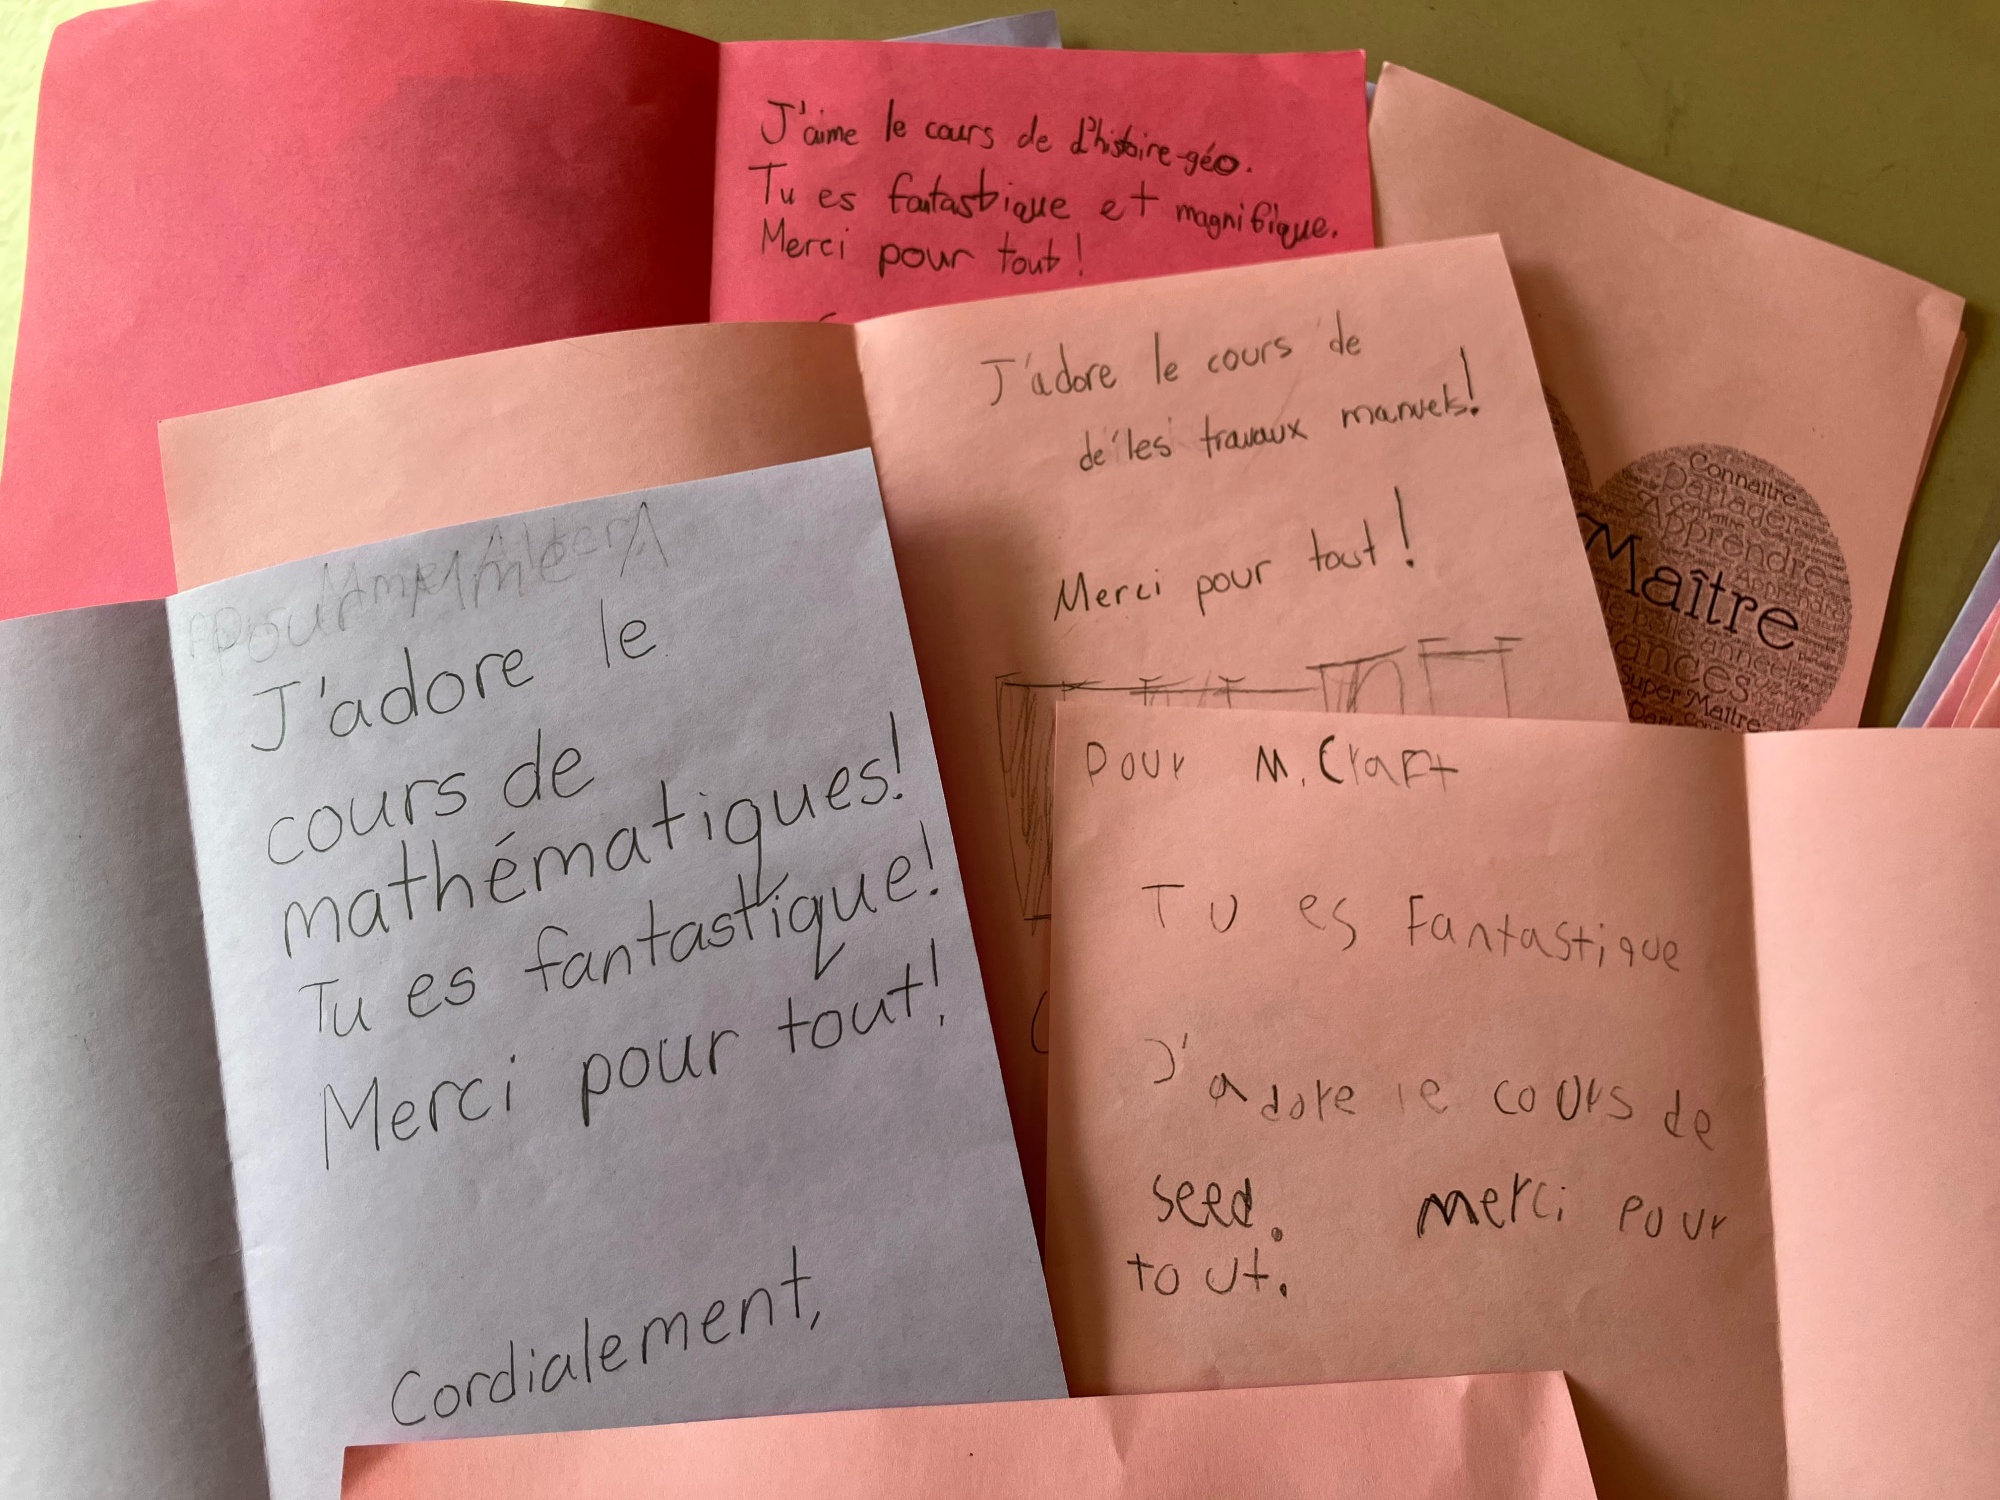 J'aime le cours de d'histoire-géo.
Tu es fantastique et magnifique.
Merci pour tout !
J'adore le cours de
de les travaux manuels!
Merci pour tout !
Connaître
Partager
Apprendre
Maître
Super Maître
Pour Mme A
J'adore le
cours de
mathématiques!
Tu es fantastique!
Merci pour tout!
Cordialement,
Pour M. Craft
Tu es Fantastique
J'adore le cours de
seed. merci pour
tout.